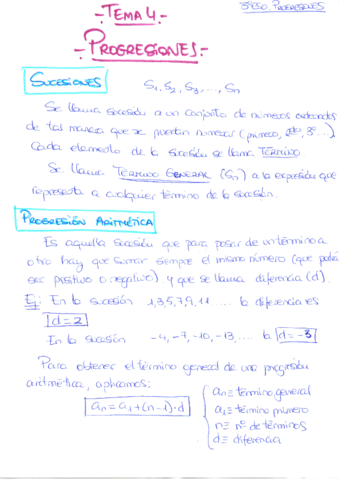 3ºESO PROGRESIONES
- TEMA 4 -
- PROGRESIONES -
SUCESIONES
S₁, S₂, S₃, ..., Sn
Se llama sucesión a un conjunto de números ordenados
de tal manera que se puedan numerar (primero, 2º, 3º...)
Cada elemento de la sucesión se llama TÉRMINO
Se llama TÉRMINO GENERAL (Sn) a la expresión que
representa a cualquier término de la sucesión.
PROGRESIÓN ARITMÉTICA
Es aquella sucesión que para pasar de un término a
otro hay que sumar siempre el mismo número (que podrá
ser positivo o negativo) y que se llama diferencia (d).
Ej: En la sucesión 1,3,5,7,9,11 .... la diferencia es
d=2
En la sucesión -4,-7,-10,-13,.... la d=-3
Para obtener el término general de una progresión
aritmética, aplicamos:
an = a1+(n-1)·d
an ≡ término general
a1 ≡ término primero
n ≡ nº de términos
d ≡ diferencia